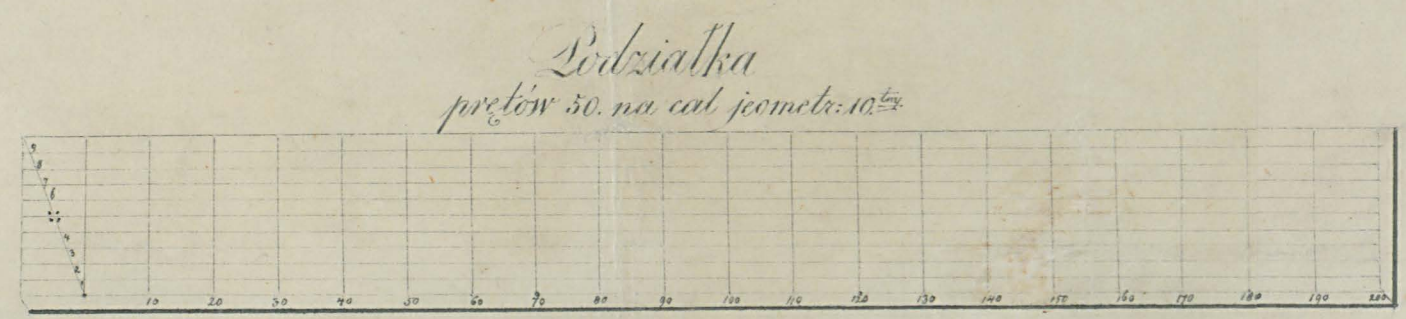 Podziałka
prętów 50. na cal jeometr: 10.tny.
9
8
7
6
4
3
2
10 20 30 40 50 60 70 80 90 100 110 120 130 140 150 160 170 180 190 200